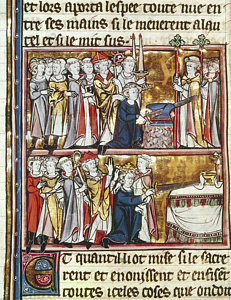 et lors aporta lespee toute nue en
tre ses mains si le menerent alau
tel et si le mit sus.
Et quant il iot mise si le sacre
rent et enoinssent et enfisēt
toutes iceles coses que on doit